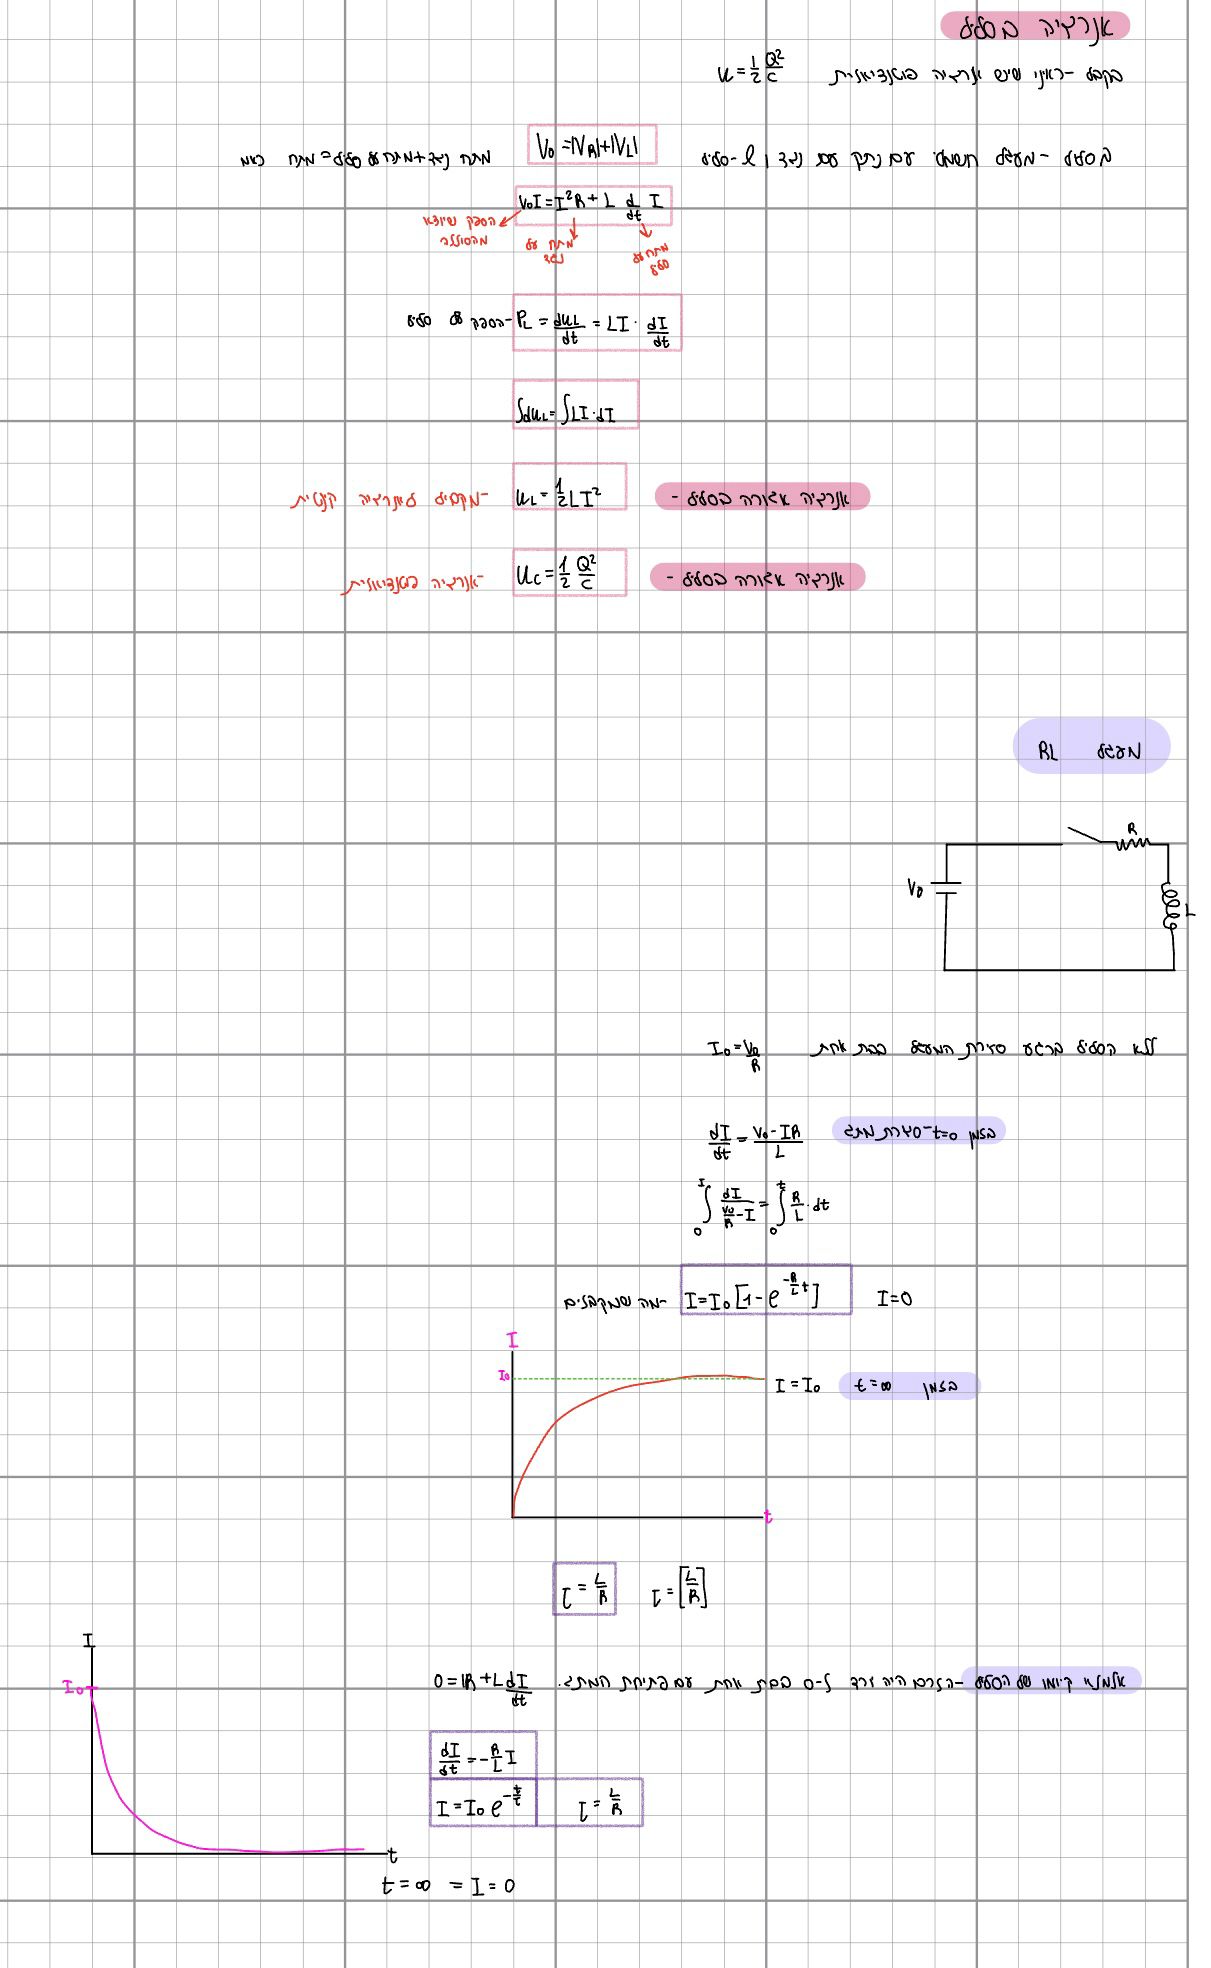 אנרגיה בסליל
בקבל - ראינו שיש אנרגיה פוטנציאלית U = ½ Q²/C
בסליל - מעגל חשמלי עם נתק עם נגד, ו L-סליל V₀ = |V_R| + |V_L| מתח נגד + מתח על סליל = מתח
V₀I = I²R + L d/dt I
הספק שיוצא מהסוללה
מתח על נגד
מתח על סליל
הספק של סליל - P_L = dU_L/dt = LI · dI/dt
∫dU_L = ∫LI·dI
אנרגיה אגורה בסליל - U_L = ½LI² - מקביל לאנרגיה קינטית
אנרגיה אגורה בסליל - U_C = ½ Q²/C - אנרגיה פוטנציאלית
מעגל RL
R
V₀
L
ללא הסליל ברגע סגירת המעגל בבת אחת I₀ = V₀/R
בזמן t=0 - סגירת מתג dI/dt = (V₀ - IR)/L
∫₀ᴵ dI/(V₀/R - I) = ∫₀ᵗ R/L · dt
I=0 I = I₀[1 - e^(-R/L t)] - מה שמקבלים
I
I₀
בזמן t=∞ I = I₀
t
τ = L/R τ = [L/R]
אלמלא קיומו של הסליל - הזרם היה יורד ל-0 בבת אחת עם פתיחת המתג. 0 = IR + L dI/dt
I
I₀
dI/dt = -R/L I
I = I₀ e^(-t/τ) τ = L/R
t
t = ∞ = I = 0